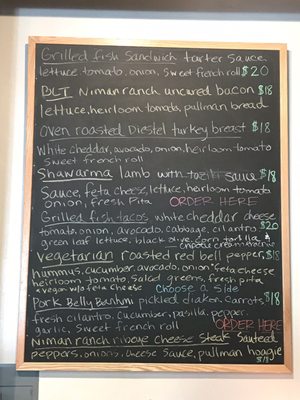 Grilled fish Sandwich tarter sauce
lettuce, tomato, onion, sweet french roll $20
BLT Niman ranch uncured bacon $18
lettuce, heirloom tomato, pullman bread
oven roasted Diestel turkey breast $18
White cheddar, avocado, onion, heirloom tomato
sweet french roll
Shawarma lamb with taziki sauce $18
Sauce, feta cheese, lettuce, heirloom tomato
onion, fresh Pita ORDER HERE
Grilled fish tacos white cheddar cheese
tomato, onion, avocado, cabbage, cilantro $20
green leaf lettuce, black olive, corn tortilla &
vegetarian roasted red bell pepper, $18
hummus, cucumber, avocado, onion, feta cheese
heirloom tomato, salad greens, fresh pita
vegan w/o feta cheese choose a side
Pork Belly Banhmi pickled diakon, carrots $18
fresh cilantro, cucumber, pasilla, pepper
garlic, sweet french roll ORDER HERE
Niman ranch ribeye cheese steak sauteed
peppers, onions, cheese sauce, pullman hoagie
$18